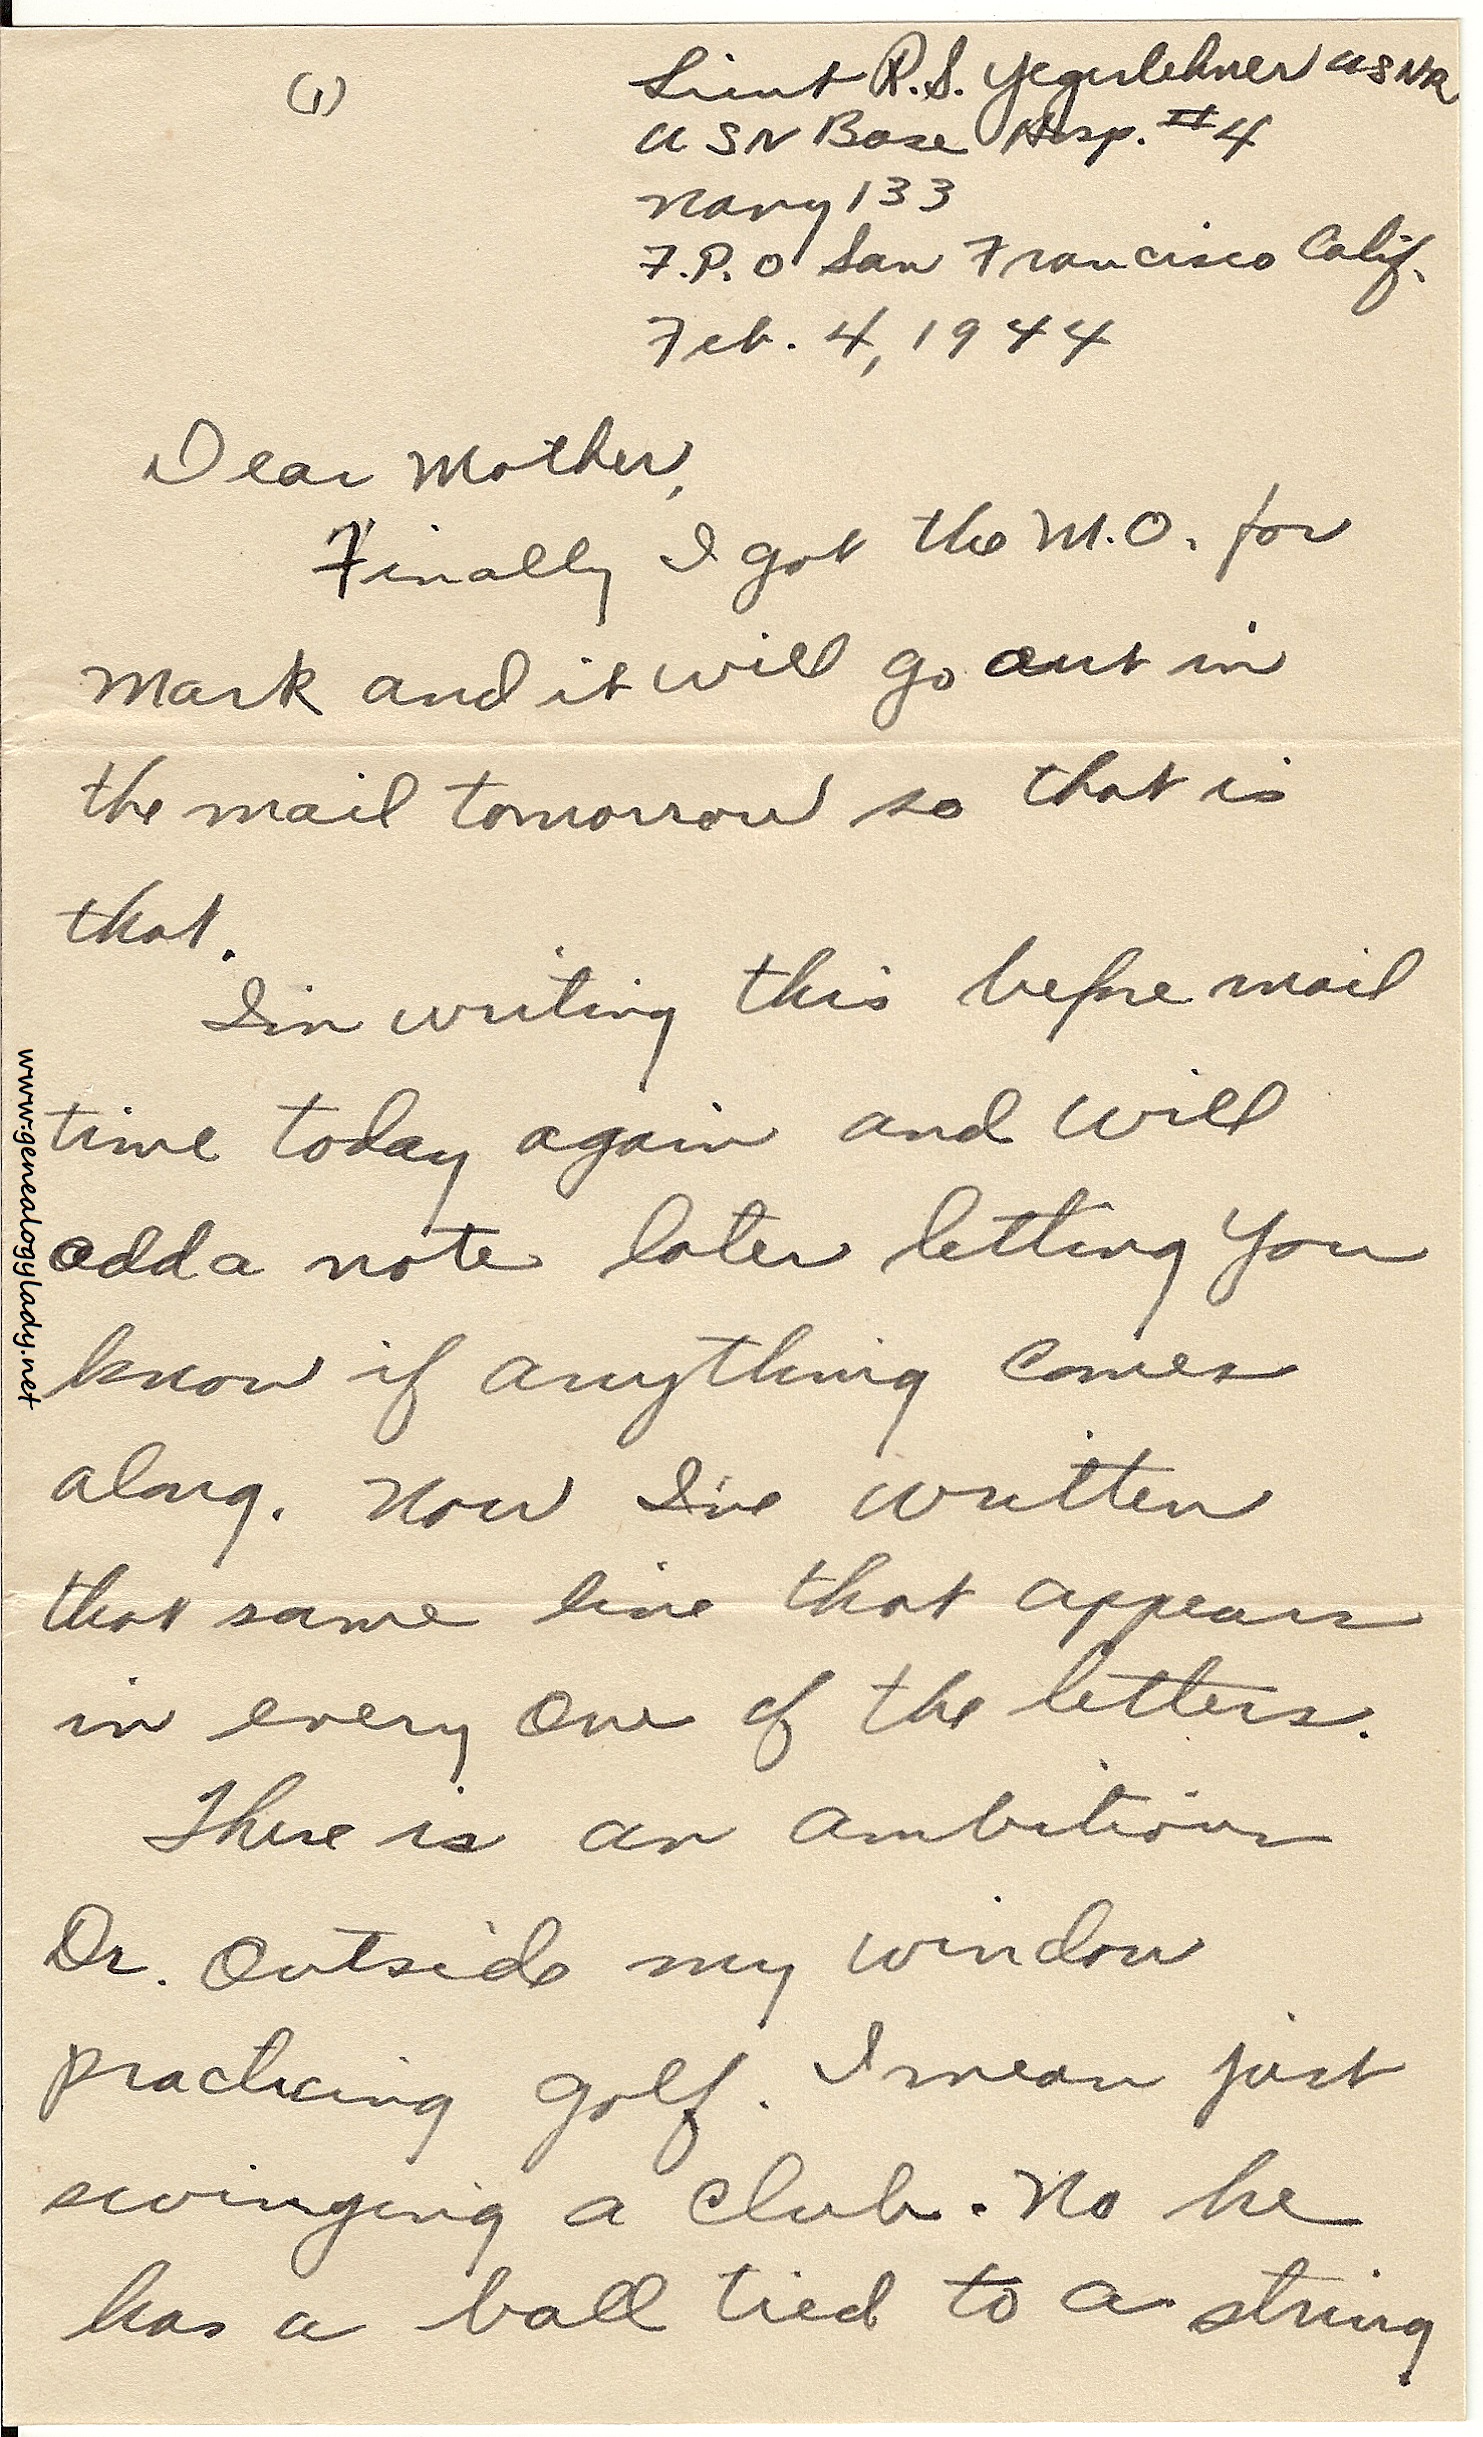 (1)
Lieut R.S. Yegerlehner USNR
USN Base Hosp. #4
Navy 133
F.P.O San Francisco Calif.
Feb. 4, 1944
Dear Mother,
Finally I got the M.O. for
Mark and it will go out in
the mail tomorrow so that is
that.
I'm writing this before mail
time today again and will
add a note later letting you
know if anything comes
along. Now I've written
that same line that appears
in every one of the letters.
There is an ambitious
Dr. outside my window
practicing golf. I mean just
swinging a club. No he
has a ball tied to a string
www.genealogylady.net